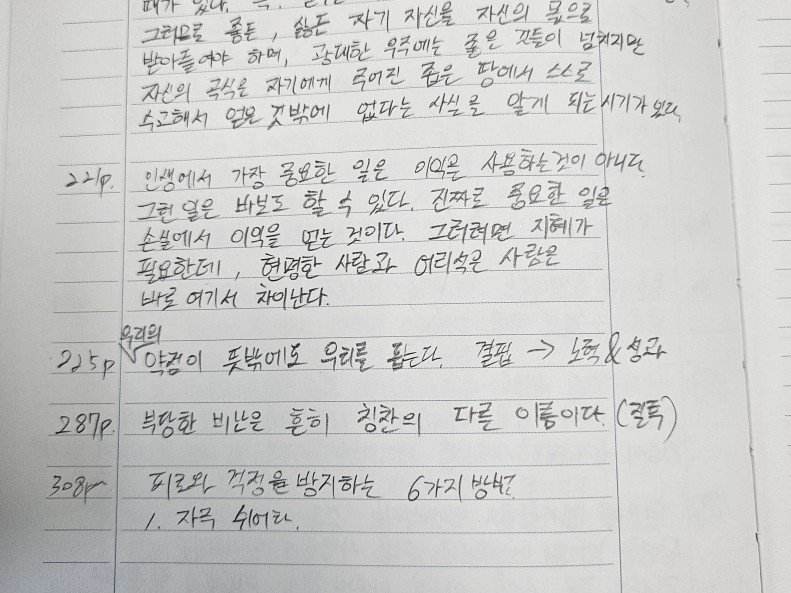 때가 있다.
그러므로 좋든, 싫든 자기 자신을 자신의 몫으로
받아들여야 하며, 광대한 우주에는 좋은 것들이 넘치지만
자신의 곡식은 자기에게 주어진 좁은 땅에서 스스로
수고해서 얻은 것밖에 없다는 사실을 알게 되는 시기가 있다.
221p. 인생에서 가장 중요한 일은 이익을 사용하는 것이 아니다.
그런 일은 바보도 할 수 있다. 진짜로 중요한 일은
손실에서 이익을 얻는 것이다. 그러려면 지혜가
필요한데, 현명한 사람과 어리석은 사람은
바로 여기서 차이난다.
우리의
225p 약점이 뜻밖에도 우리를 돕는다. 결핍 → 노력 & 성과
287p. 부당한 비난은 흔히 칭찬의 다른 이름이다. (질투)
308p. 피로와 걱정을 방지하는 6가지 방법.
1. 자주 쉬어라.